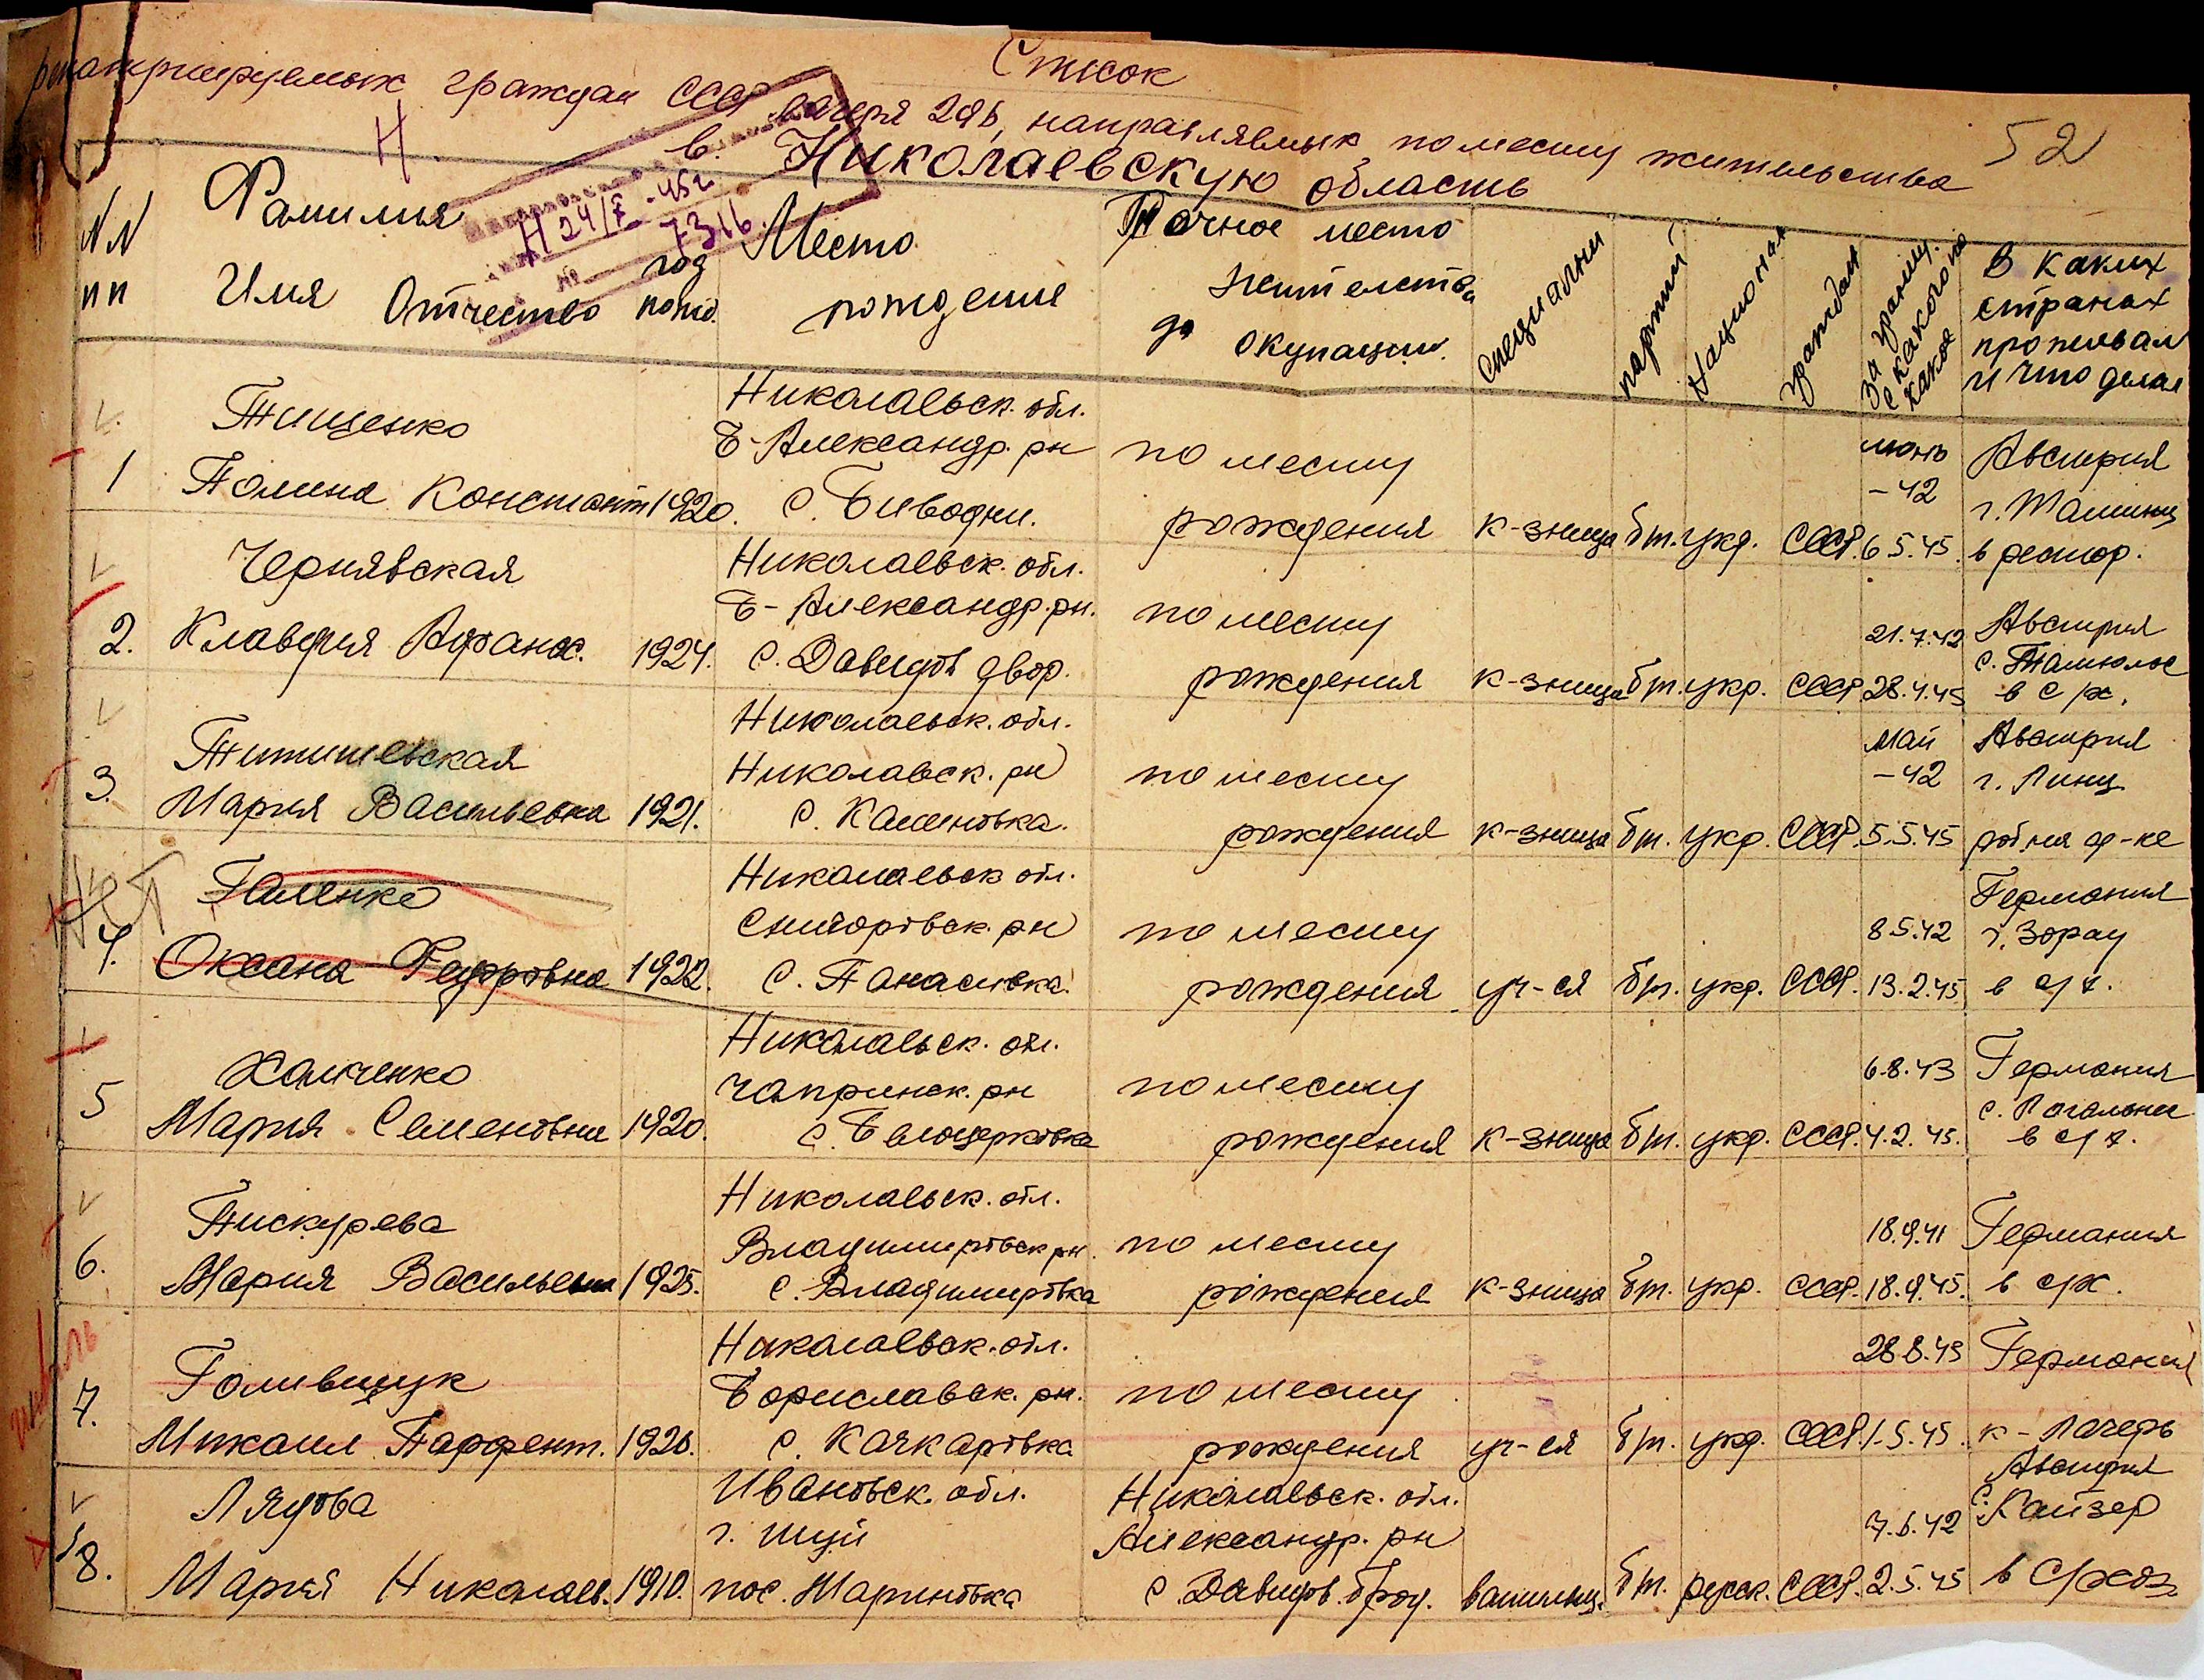 Список
репатрируемых граждан СССР лагеря 296, направляемых по месту жительства
52
Н
в. Николаевскую область
Н 24/ -45г
№ 7316
NN пп
Фамилия
Имя Отчество
год
рожд.
Место
рождения
Точное место
жительства
до окупации.
специальн
партий
Национальн
граждан
За границ.
с какого по
какое
В каких
странах
проживал
и что делал
1
Тищенко
Полина Констант
1920.
Николаевск. обл.
Б-Александр. рн
с.
по месту
рождения
к-зница
бп.
укр.
СССР.
июнь
-42
6.5.45.
Австрия
г.
в рестор.
2.
Чернявская
Клавдия Афанас.
1924.
Николаевск. обл.
Б-Александр. рн.
с. Давидов двор.
по месту
рождения
к-зница
бп.
укр.
СССР
21.7.42
28.4.45
Австрия
с.
в с/х.
3.
Титишевская
Мария Васильевна
1921.
Николаевск. обл.
Николаевск. рн
с. Каменовка.
по месту
рождения
к-зница
бп.
укр.
СССР.
май
-42
5.5.45
Австрия
г. Линц
раб. на ф-ке
4.
Галенко
Оксана Федоровна
1922.
Николаевск обл.
Снигоровск. рн
с. Панасивка
по месту
рождения
уч-ся
бп.
укр.
СССР.
8.5.42
13.2.45
Германия
г. Зорау
в с/х.
5
Халченко
Мария Семеновна
1920.
Николаевск. обл.
Чапринск. рн
с. Белоцерковка
по месту
рождения
к-зница
бп.
укр.
СССР.
6.8.43
4.2.45.
Германия
с.
в с/х.
6.
Пискурева
Мария Васильевна
1925.
Николаевск. обл.
Владимировск рн.
с. Владимировка
по месту
рождения
к-зница
бп.
укр.
СССР.
18.9.41
18.9.45.
Германия
в с/х.
7.
Голивщук
Михаил Парфент.
1926.
Николаевск. обл.
Бориславск. рн.
с. Качкаровка
по месту
рождения
уч-ся
бп.
укр.
СССР.
28.8.43
1.5.45.
Германия
к-лагерь
8.
Лядова
Мария Николаев.
1910.
Ивановск. обл.
г. Шуй
пос. Мариновка
Николаевск. обл.
Александр. рн
с. Давидов. брод.
бп.
русск.
СССР.
7.6.42
2.5.45
Австрия
с. Кайзер
в с/хоз